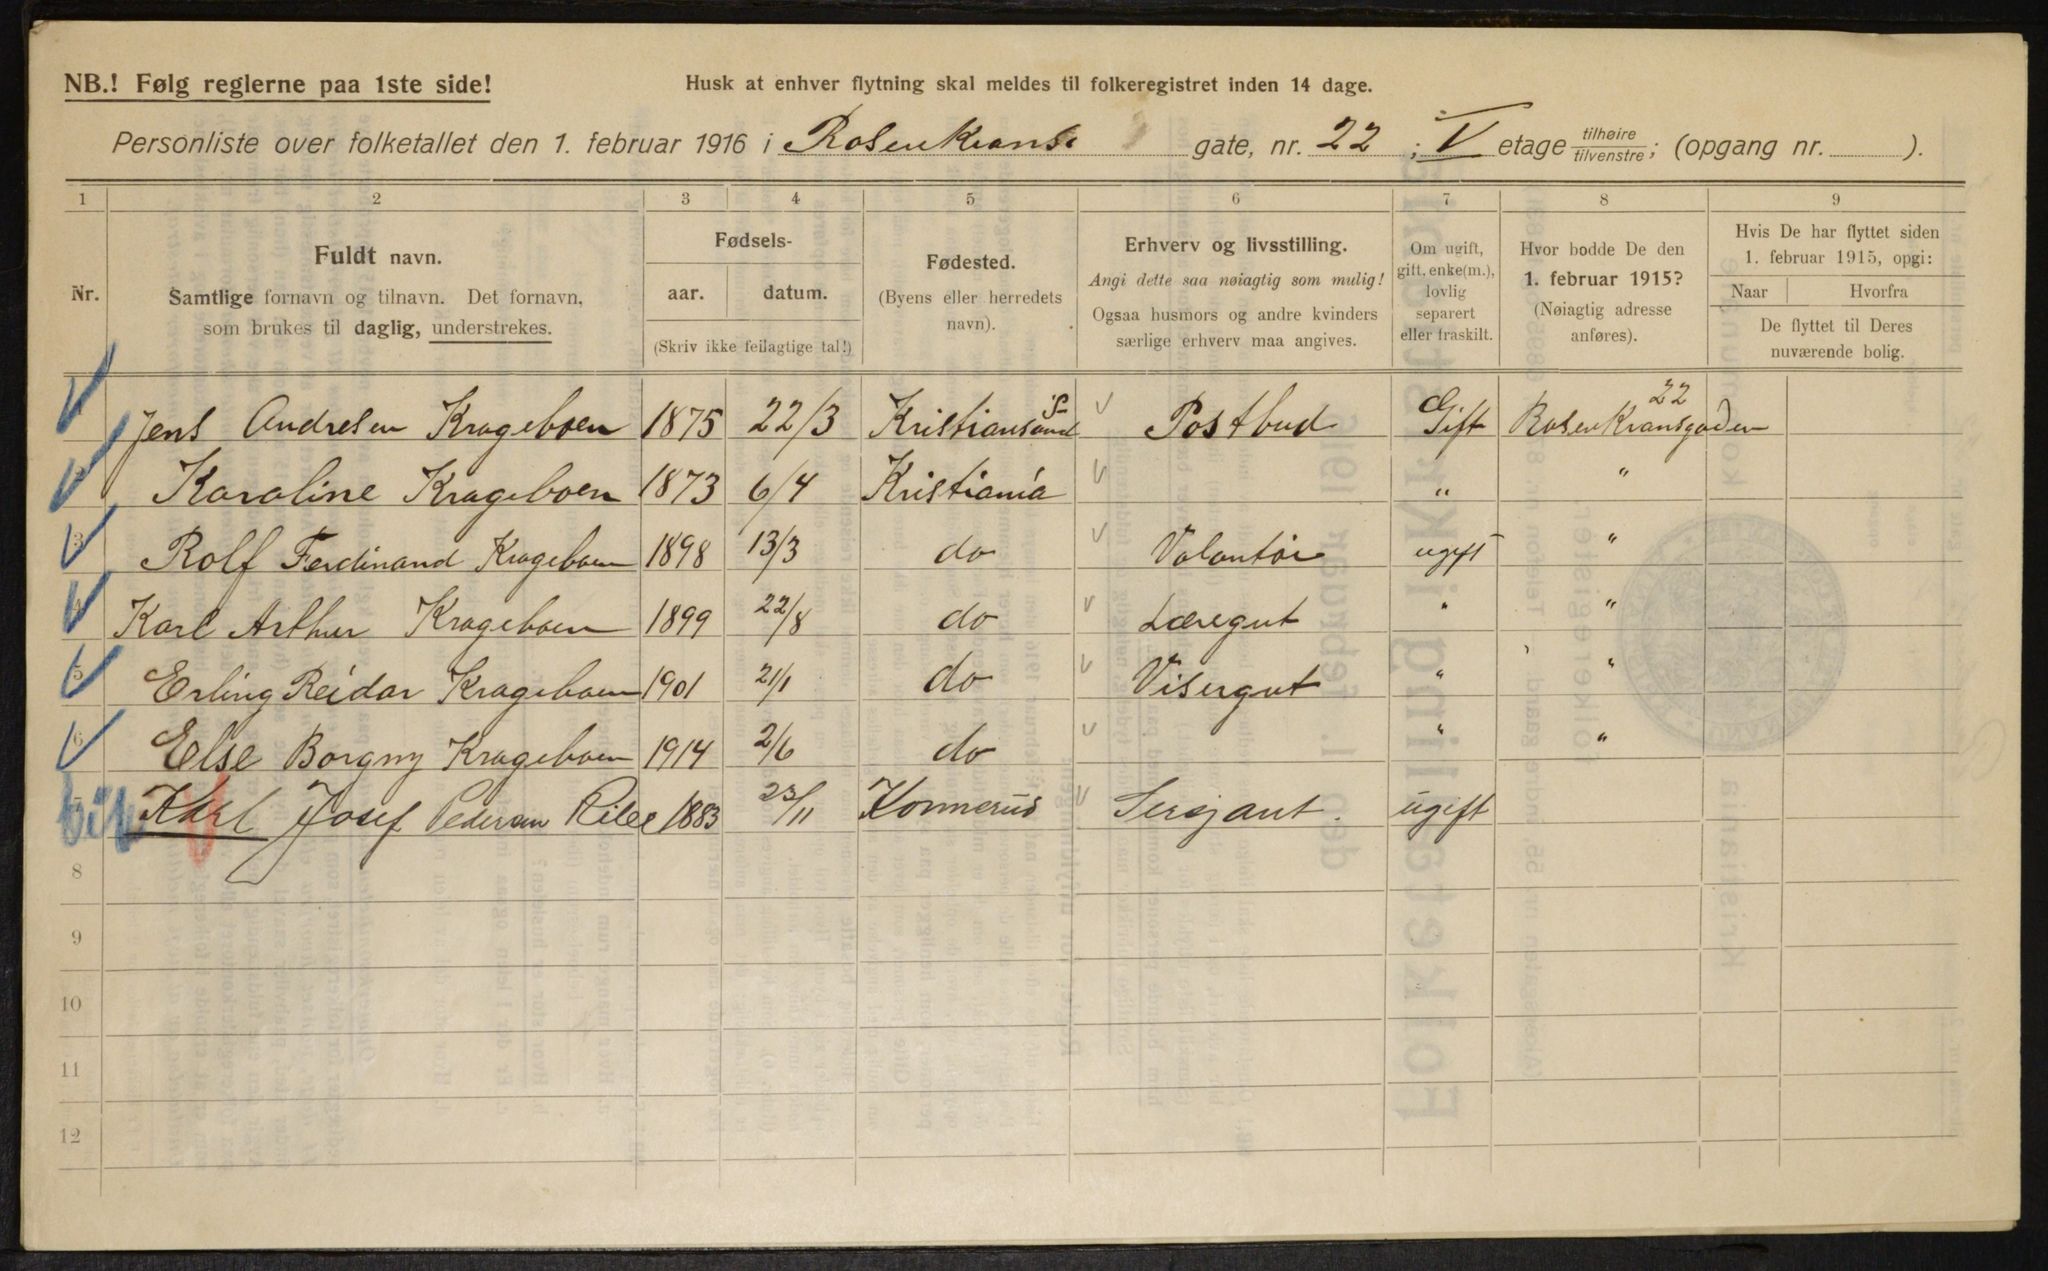 NB.! Følg reglerne paa 1ste side!
Husk at enhver flytning skal meldes til folkeregistret inden 14 dage.
Personliste over folketallet den 1. februar 1916 i Rosenkrans gate, nr. 22 ; V etage tilhøire/tilvenstre; (opgang nr. ).
1 2 3 4 5 6 7 8 9
Nr.
Fuldt navn.
Samtlige fornavn og tilnavn. Det fornavn,
som brukes til daglig, understrekes.
Fødsels-
aar. datum.
(Skriv ikke feilagtige tal!)
Fødested.
(Byens eller herredets
navn).
Erhverv og livsstilling.
Angi dette saa nøiagtig som mulig!
Ogsaa husmors og andre kvinders
særlige erhverv maa angives.
Om ugift,
gift, enke(m.),
lovlig
separert
eller fraskilt.
Hvor bodde De den
1. februar 1915?
(Nøiagtig adresse
anføres).
Hvis De har flyttet siden
1. februar 1915, opgi:
Naar Hvorfra
De flyttet til Deres
nuværende bolig.
Jens Andresen Krageboen 1875 22/3 Kristiansand S Postbud Gift Rosenkransgaden 22
2 Karoline Krageboen 1873 6/4 Kristiania " "
3 Rolf Ferdinand Krageboen 1898 13/3 do Volontør ugift "
4 Karl Arthur Krageboen 1899 22/8 do Læregut " "
5 Erling Reidar Krageboen 1901 21/1 do Visergut " "
6 Else Borgny Krageboen 1914 2/6 do " "
Karl Josef Pedersen 1883 23/11 Konnerud Sersjant. ugift
8
9
10
11
12